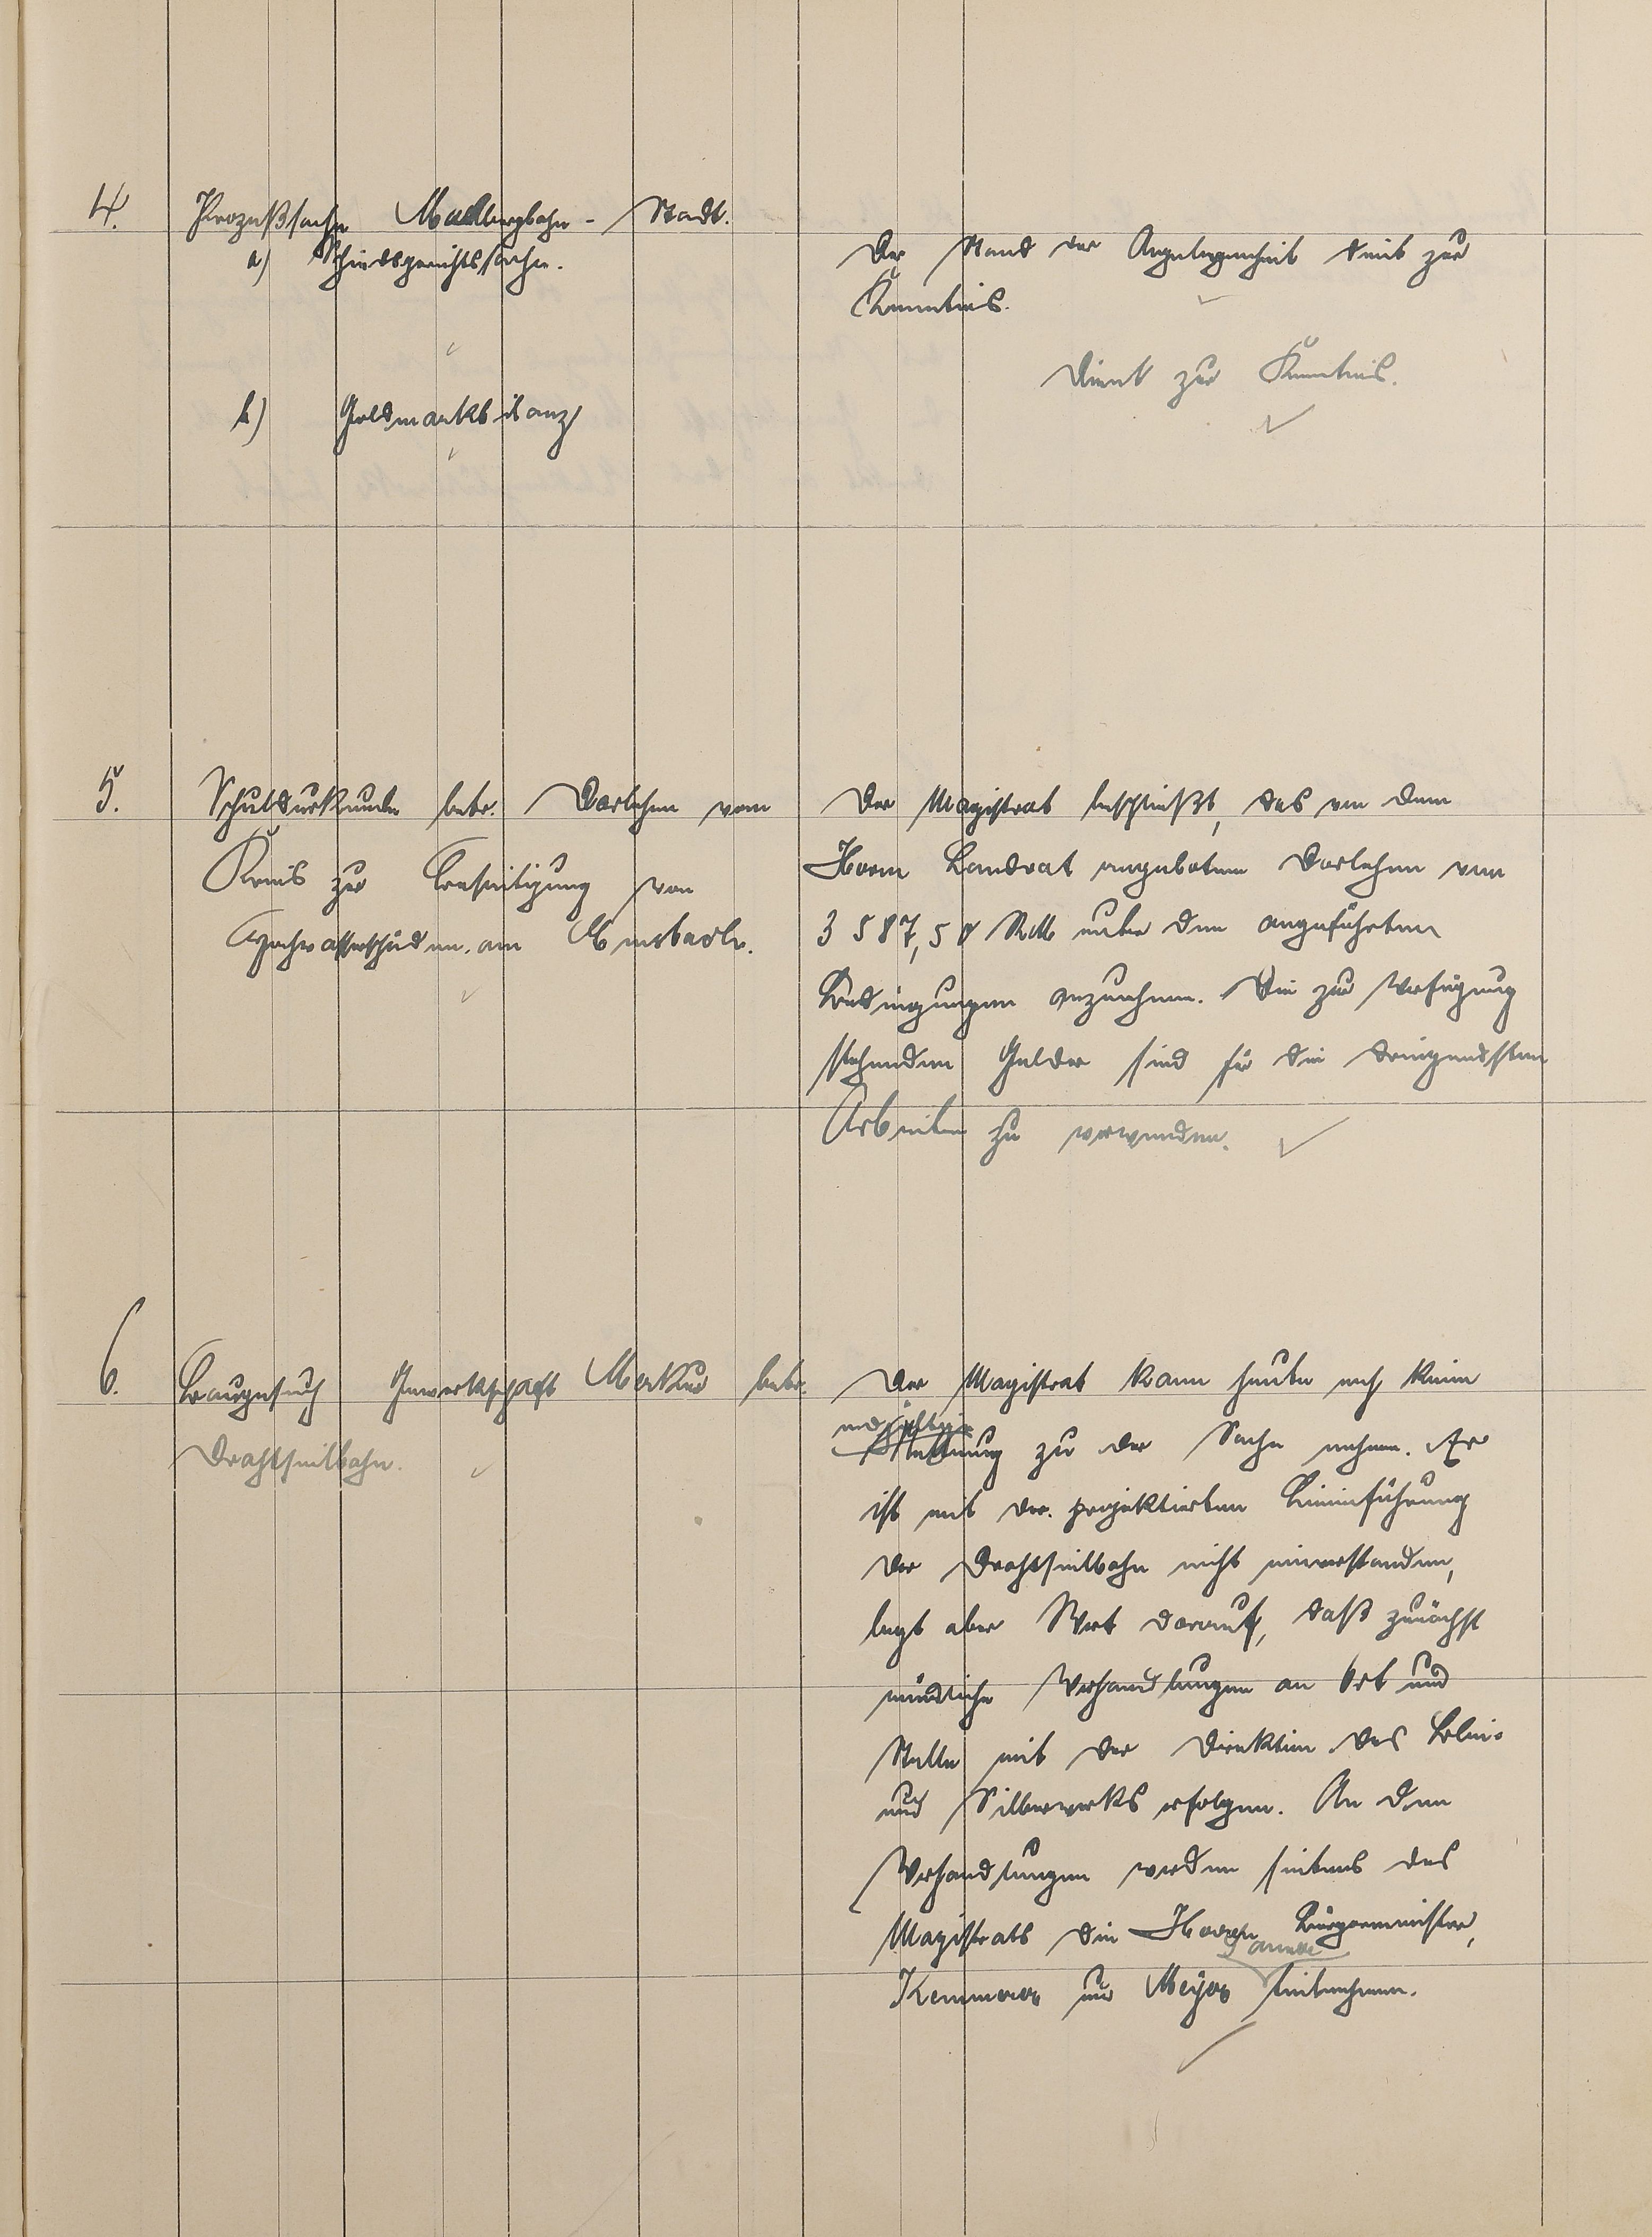 4. Prozeßsache Malbergbahn - Stadt.
a) Schiedsgerichtssache.
Der Stand der Angelegenheit dient zur
Kenntnis.
Dient zur Kenntnis.
b) Goldmarkbilanz
5. Schuldurkunde betr. Darlehen vom
Kreis zur Beseitigung von
Hochwasserschäden am Emsbach.
Der Magistrat beschließt, das von dem
Herrn Landrat angebotene Darlehen von
3 587,50 RM unter den angeführten
Bedingungen anzunehmen. Die zur Verfügung
stehenden Gelder sind für die dringendsten
Arbeiten zu verwenden.
6. Baugesuch Gewerkschaft Merkur betr.
Drahtseilbahn.
Der Magistrat kann heute noch keine
endgültige
Stellung zu der Sache nehmen. Er
ist mit der projektierten Linienführung
der Drahtseilbahn nicht einverstanden,
legt aber Wert darauf, daß zunächst
mündliche Verhandlungen an Ort und
Stelle mit der Direktion des Blei-
und Silberwerks erfolgen. An den
Verhandlungen werden seitens des
Magistrats die Herren Bürgermeister,
Kemmerer und Meyer teilnehmen.